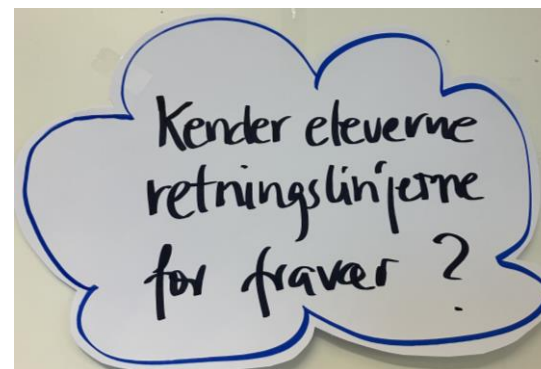 Kender eleverne
retningslinjerne
for fravær ?